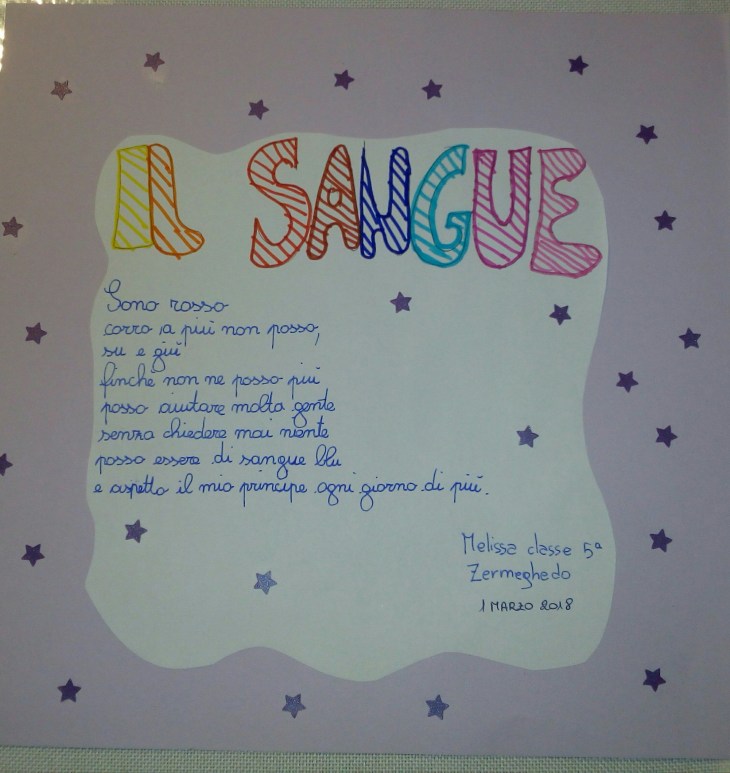 IL SANGUE
Sono rosso
corro a più non posso,
su e giù
finchè non ne posso più
posso aiutare molta gente
senza chiedere mai niente
posso essere di sangue blu
e aspetto il mio principe ogni giorno di più.
Melissa classe 5ª
Zermeghedo
1 MARZO 2018